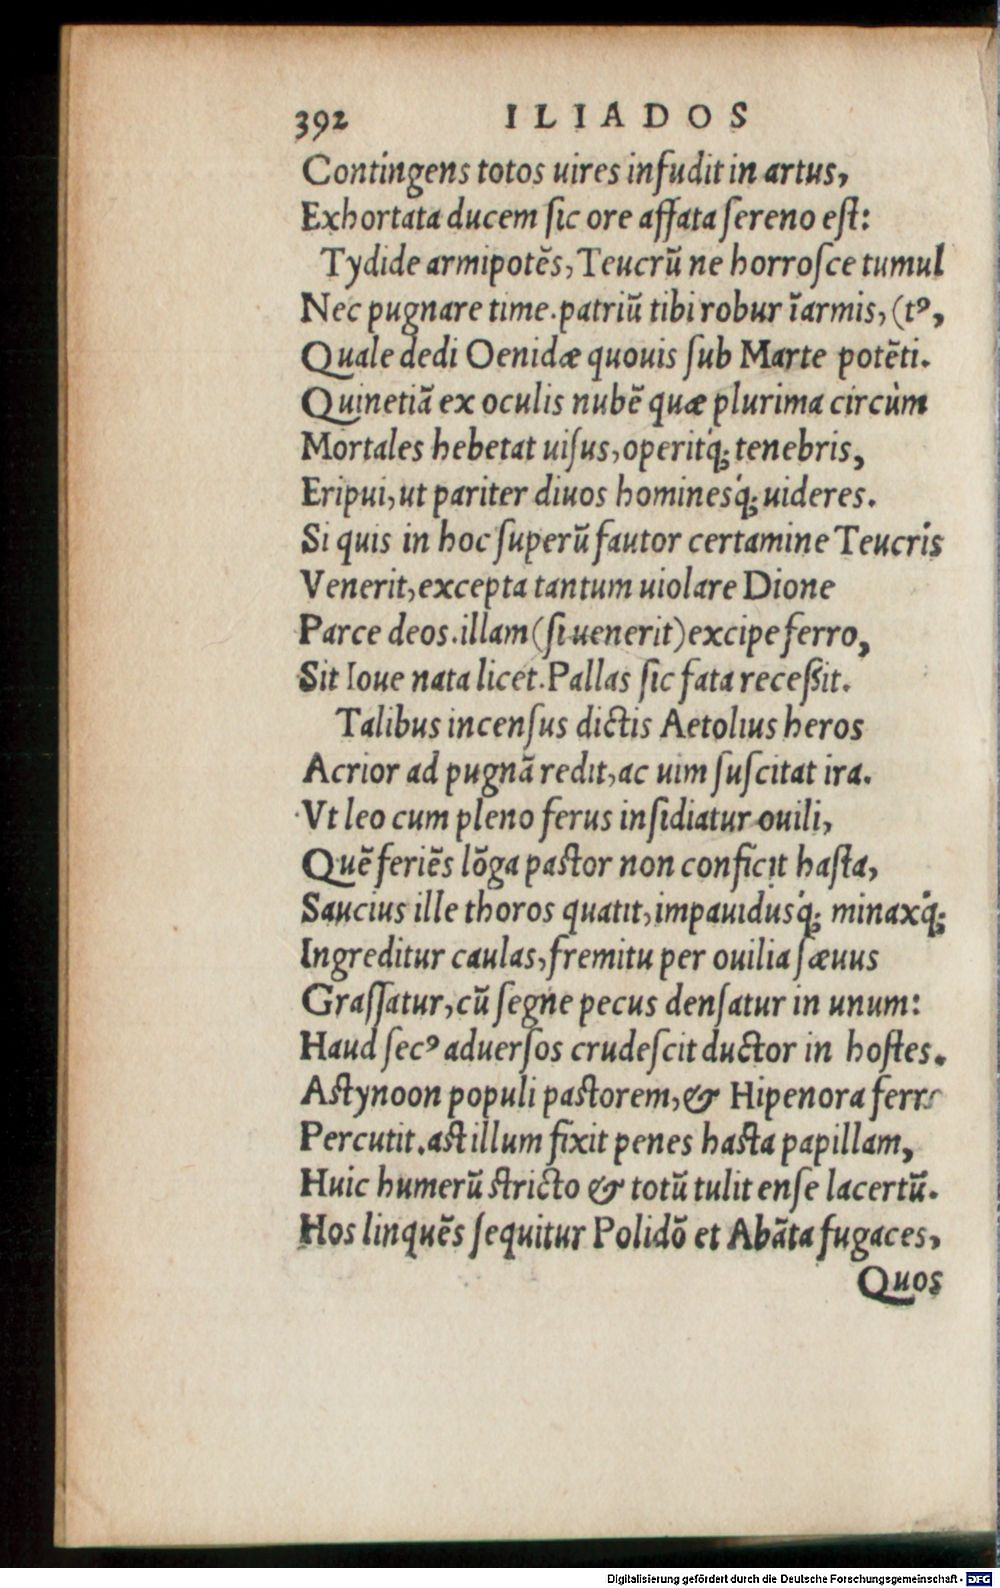 392 ILIADOS
Contingens totos uires infudit in artus,
Exhortata ducem sic ore affata sereno est:
Tydide armipotẽs, Teucrũ ne horrosce tumul
Nec pugnare time. patriũ tibi robur ĩ armis, (tꝰ,
Quale dedi Oenidæ quouis sub Marte potẽti.
Quinetiã ex oculis nubẽ quæ plurima circùm
Mortales hebetat uisus, operitq́; tenebris,
Eripui, ut pariter diuos hominesq́; uideres.
Si quis in hoc superũ fautor certamine Teucris
Venerit, excepta tantum uiolare Dione
Parce deos. illam (si uenerit) excipe ferro,
Sit Ioue nata licet. Pallas sic fata receßit.
Talibus incensus dictis Aetolius heros
Acrior ad pugnã redit, ac uim suscitat ira.
Vt leo cum pleno ferus insidiatur ouili,
Quẽ feriẽs lõga pastor non conficit hasta,
Saucius ille thoros quatit, impauidusq́; minaxq́;
Ingreditur caulas, fremitu per ouilia sæuus
Grassatur, cũ segne pecus densatur in unum:
Haud secꝰ aduersos crudescit ductor in hostes.
Astynoon populi pastorem, & Hipenora ferro
Percutit. ast illum fixit penes hasta papillam,
Huic humerũ stricto & totũ tulit ense lacertũ.
Hos linquẽs sequitur Polidõ et Abãta fugaces,
Quos
Digitalisierung gefördert durch die Deutsche Forschungsgemeinschaft - DFG